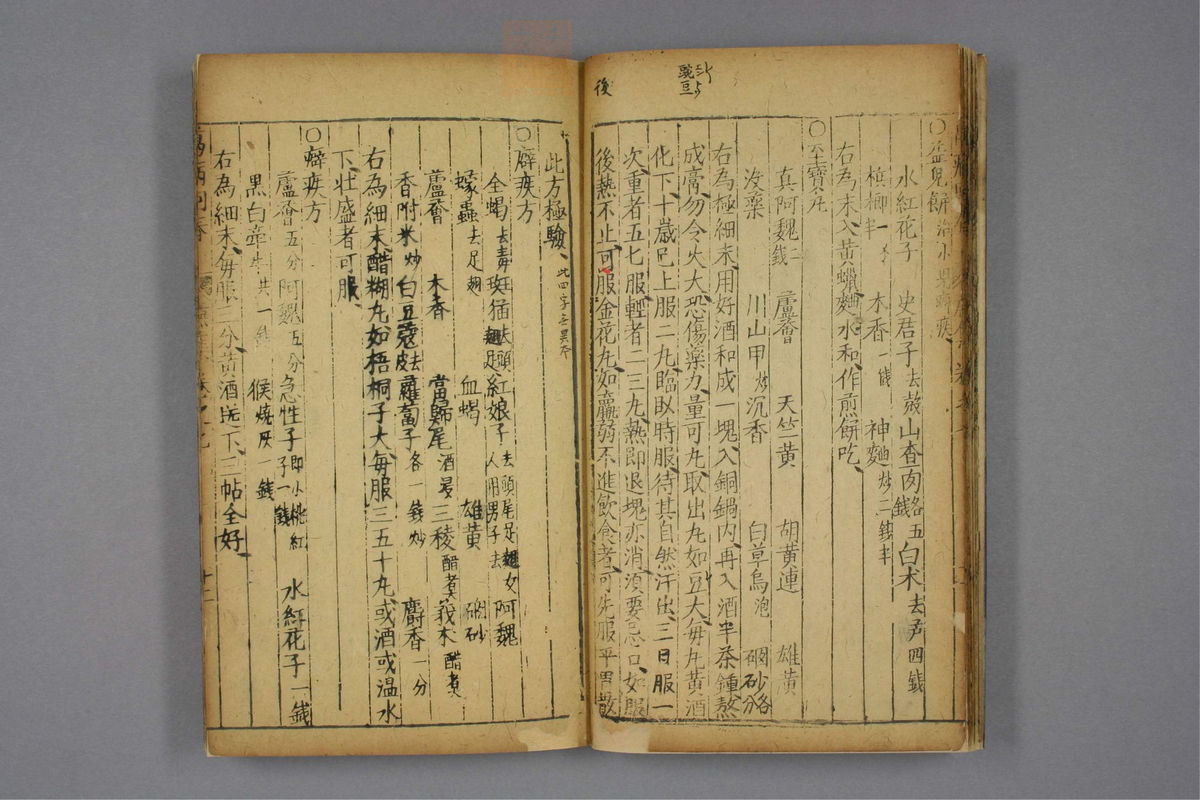 ○ 餅治小兒
水紅花子 史君子去殼山查肉各五錢白朮去芦四錢
檳榔半 木香一錢 神麯炒二錢半
右為末入黃蠟麵水和作煎餅吃
○ 寶丸
真阿魏二錢 蘆薈 天竺黃 胡黃連 雄黃
没藥 川山甲炒沉香 白草烏泡 硇砂各分
右為極細末用好酒和成一塊入銅鍋内再入酒半茶鍾熬
成膏勿令火大恐傷藥力量可丸取出丸如豆大每丸黃酒
化下十歲已上服二丸臨卧時服待其自然汗出三日服一
次重者五七服輕者二三丸熱即退塊亦消須要忌口如服
後熱不止可服金花丸如羸弱不進飲食者可先服平胃散
後
豌豆
此方極驗此四字
○癖疾方
全蝎去毒斑猫去頭翅足紅娘子去頭尾足翅女人用男子去阿魏
蝱蟲去足翅 血竭 雄黃 硇砂
蘆薈 木香 當歸尾酒浸三稜醋煮莪朮醋煮
香附米炒白豆蔻去皮蘿蔔子各一錢炒 麝香一分
右為細末醋糊丸如梧桐子大每服三五十丸或酒或温水
下壯盛者可服
○癖疾方
蘆薈五分阿魏五分急性子即小桃紅子一錢 水紅花子一錢
黑白牽牛共一錢 猴燒灰一錢
右為細末每服三分黃酒送下三帖全好